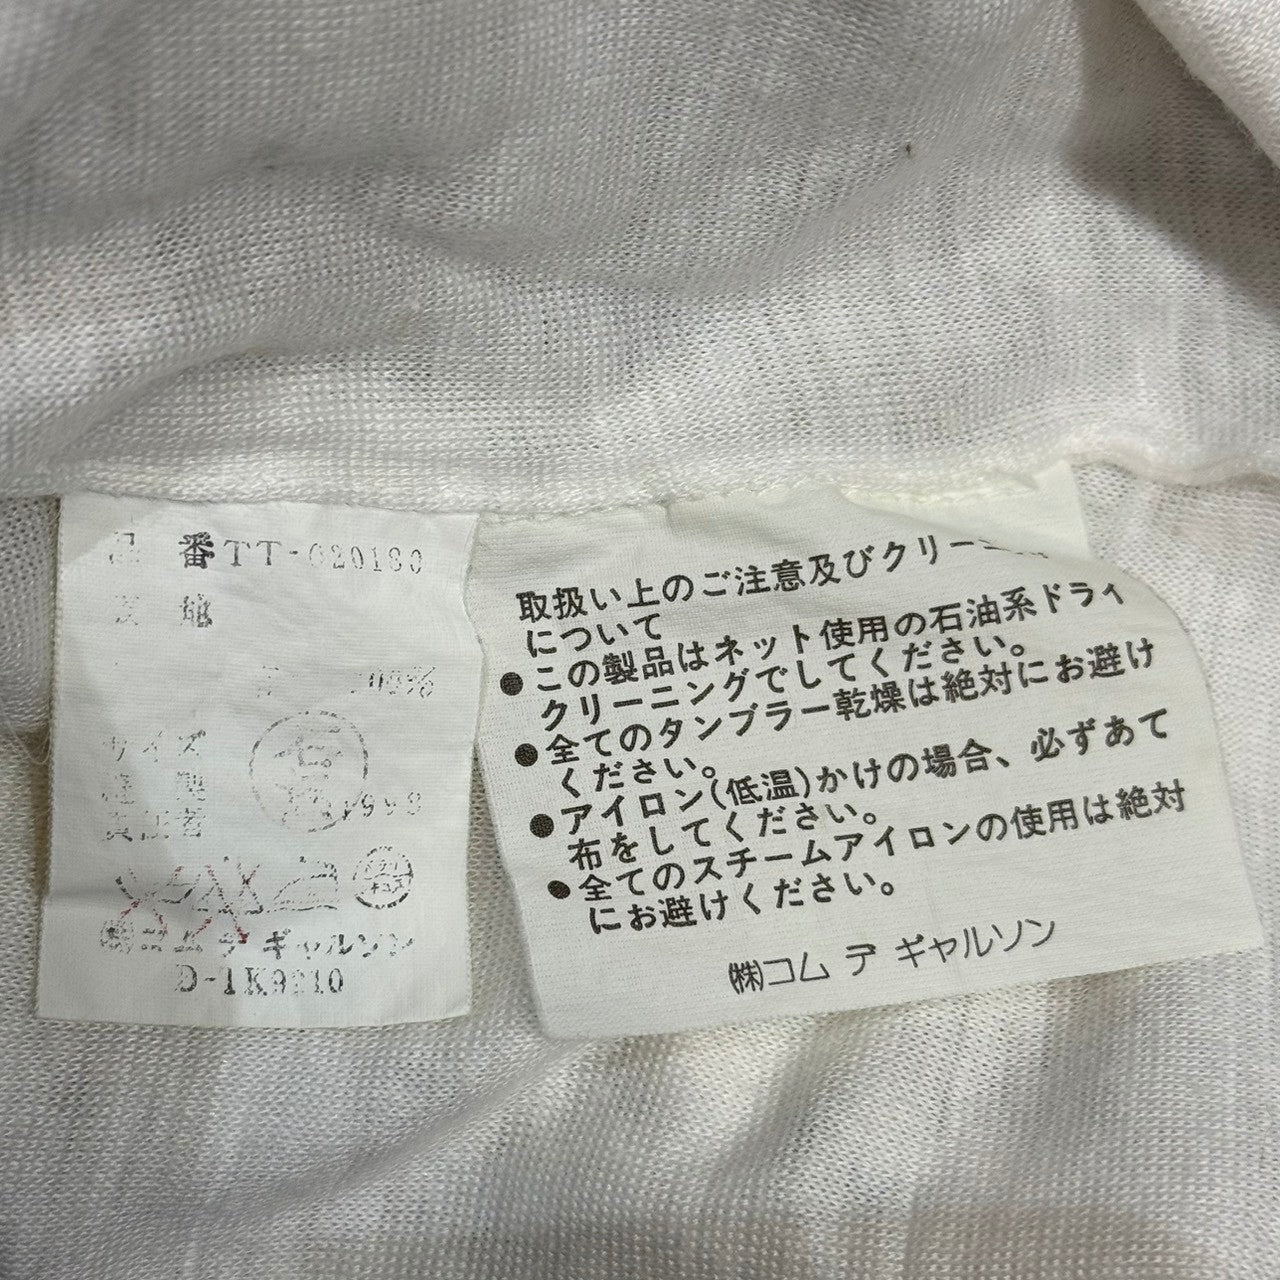 品 番 TT-020180
表 地
100%
サイズ
1998
㈱コム デ ギャルソン
D-1K9210
取扱い上のご注意及びクリーニング
について
●この製品はネット使用の石油系ドライ
クリーニングでしてください。
●全てのタンブラー乾燥は絶対にお避け
ください。
●アイロン(低温)かけの場合、必ずあて
布をしてください。
●全てのスチームアイロンの使用は絶対
にお避けください。
㈱コム デ ギャルソン